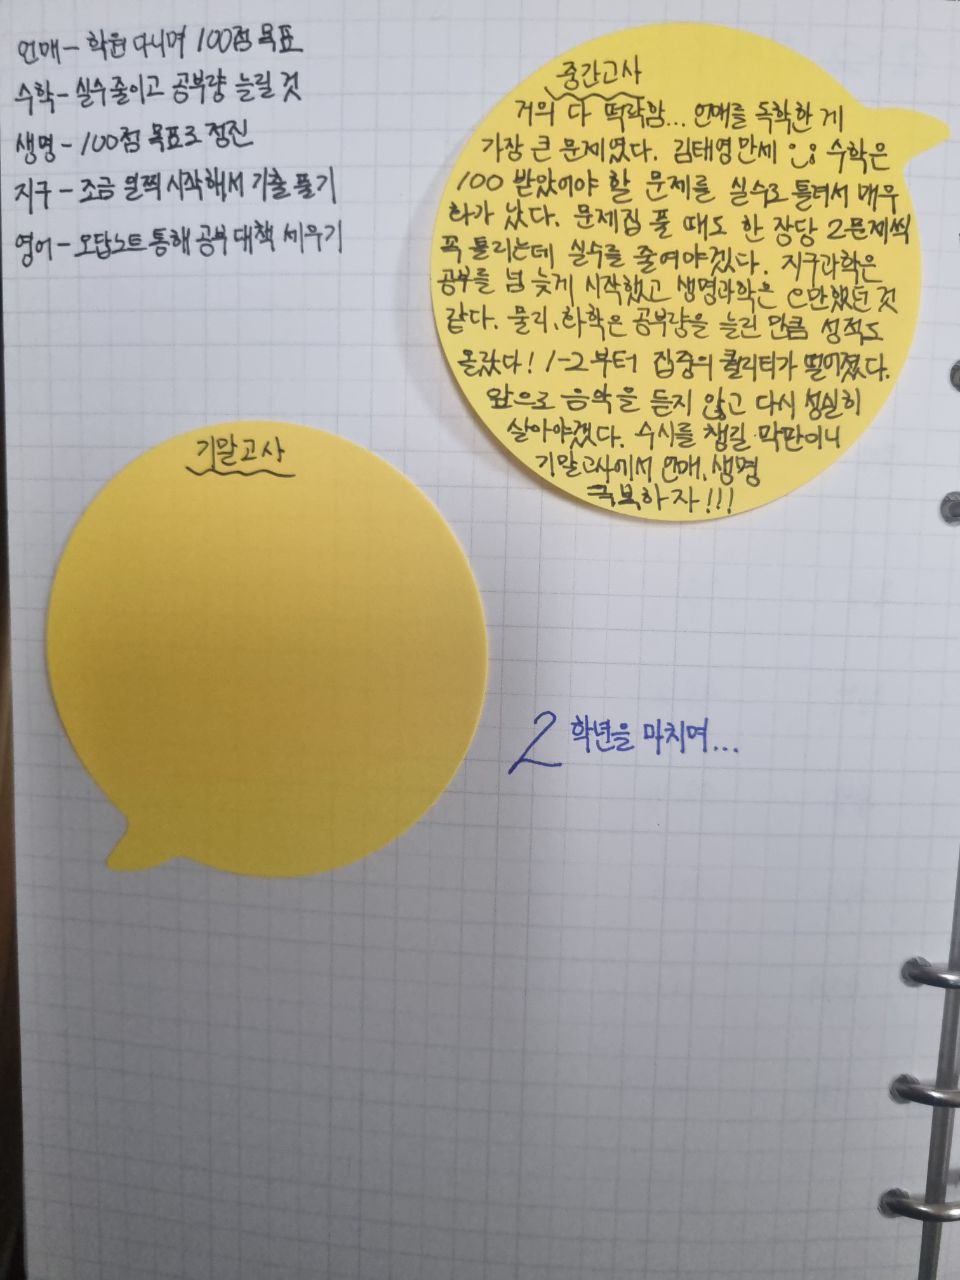 언매 - 학원 다니며 100점 목표
수학 - 실수 줄이고 공부량 늘릴 것
생명 - 100점 목표로 정진
지구 - 조금 일찍 시작해서 기출 풀기
영어 - 오답노트 통해 공부 대책 세우기
중간고사
거의 다 떡락함... 언매를 독학한 게
가장 큰 문제였다. 김태영 만세 수학은
100 받았어야 할 문제를 실수로 틀려서 매우
화가 났다. 문제집 풀 때도 한 장당 2문제씩
꼭 틀리는데 실수를 줄여야겠다. 지구과학은
공부를 넘 늦게 시작했고 생명과학은 안했던 것
같다. 물리, 화학은 공부량을 늘린 만큼 성적도
올랐다! 1-2부터 집중의 퀄리티가 떨어졌다.
앞으로 음악을 듣지 않고 다시 성실히
살아야겠다. 수시를 챙길 막판이니
기말고사에서 언매, 생명
극복하자!!!
기말고사
2학년을 마치며...